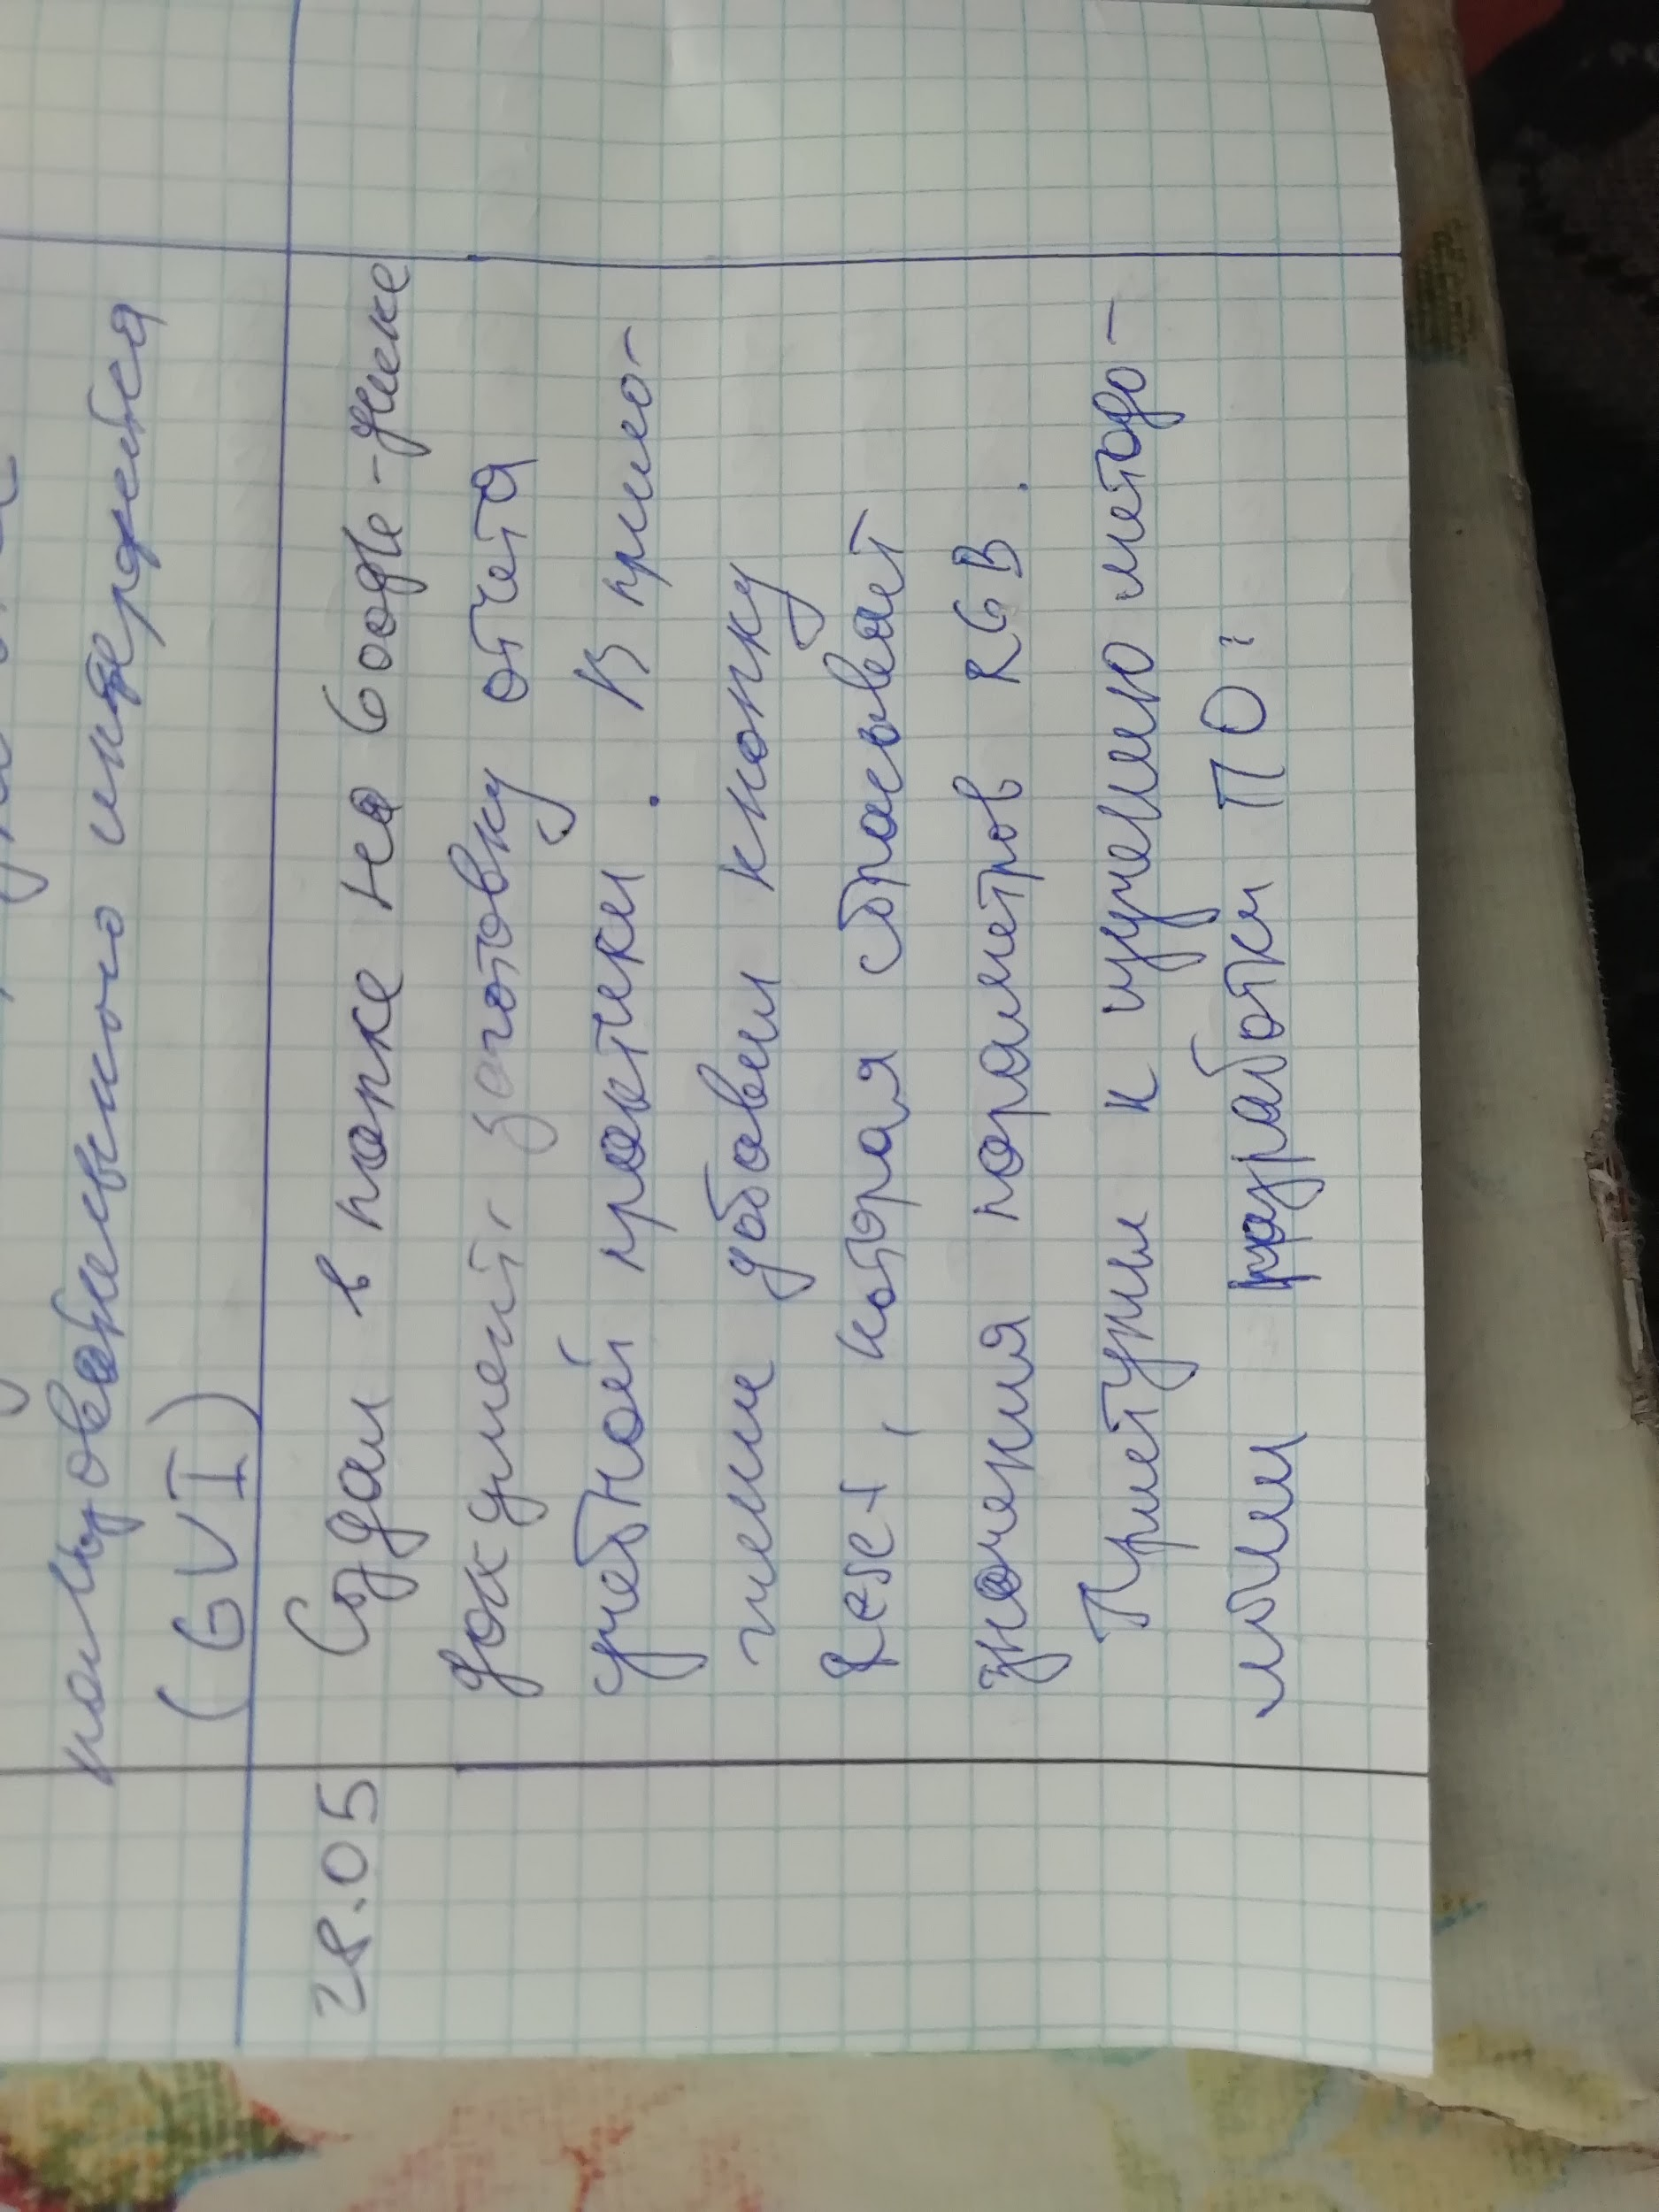 пользовательского интерфейса
(GUI)
28.05 Создал в папке на Google-диске
документ заготовку отчета
учебной практики. В прило-
жении добавил кнопку
Reset, которая сбрасывает
значения параметров RGB.
Приступил к изучению методо-
логии разработки ПО: